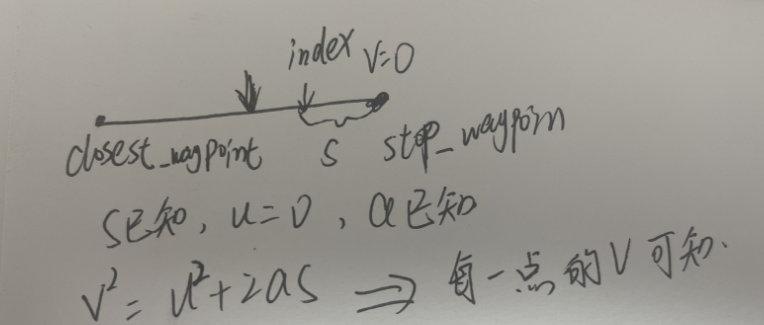 index v=0
closest_waypoint S stop_waypoin
S已知, u=0, a已知
v²=u²+2as ⇒ 每一点的V可知.